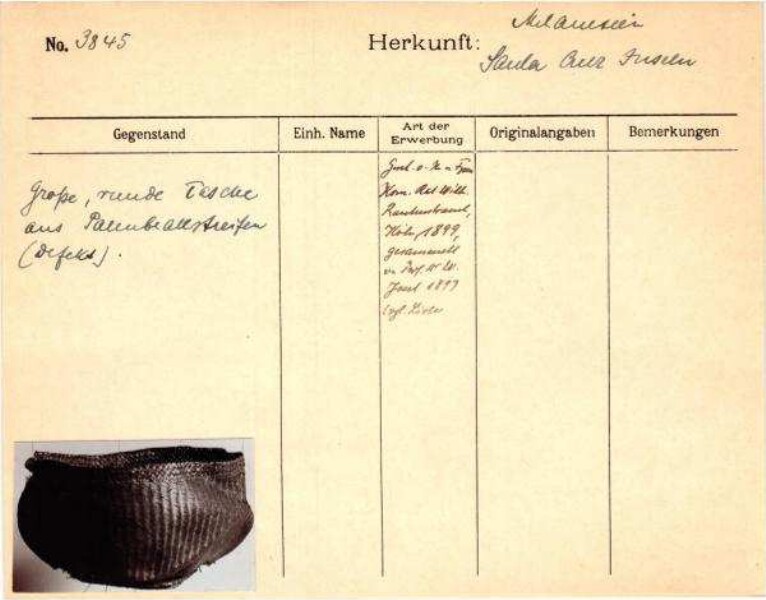 No. 3845
Herkunft: Melanesien
Santa Cruz Inseln
Gegenstand
Einh. Name
Art der Erwerbung
Originalangaben
Bemerkungen
Große, runde Tasche
aus Palmblattstreifen
(defekt).
Kom. Rat Wilh.
Köln, 1899,
gesammelt
Joest 1897
vgl. Liste